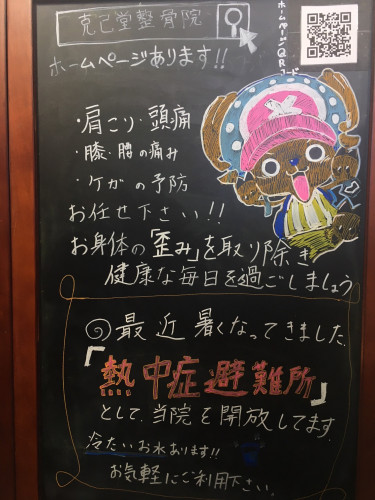 克己堂整骨院
ホームページQRコード
ホームページあります!!
・肩こり・頭痛
・膝・腰の痛み
・ケガの予防
お任せ下さい!!
お身体の「歪み」を取り除き
健康な毎日を過ごしましょう
◎最近暑くなってきました。
「熱中症避難所」
として、当院を開放してます。
冷たいお水あります!!
お気軽にご利用下さい。